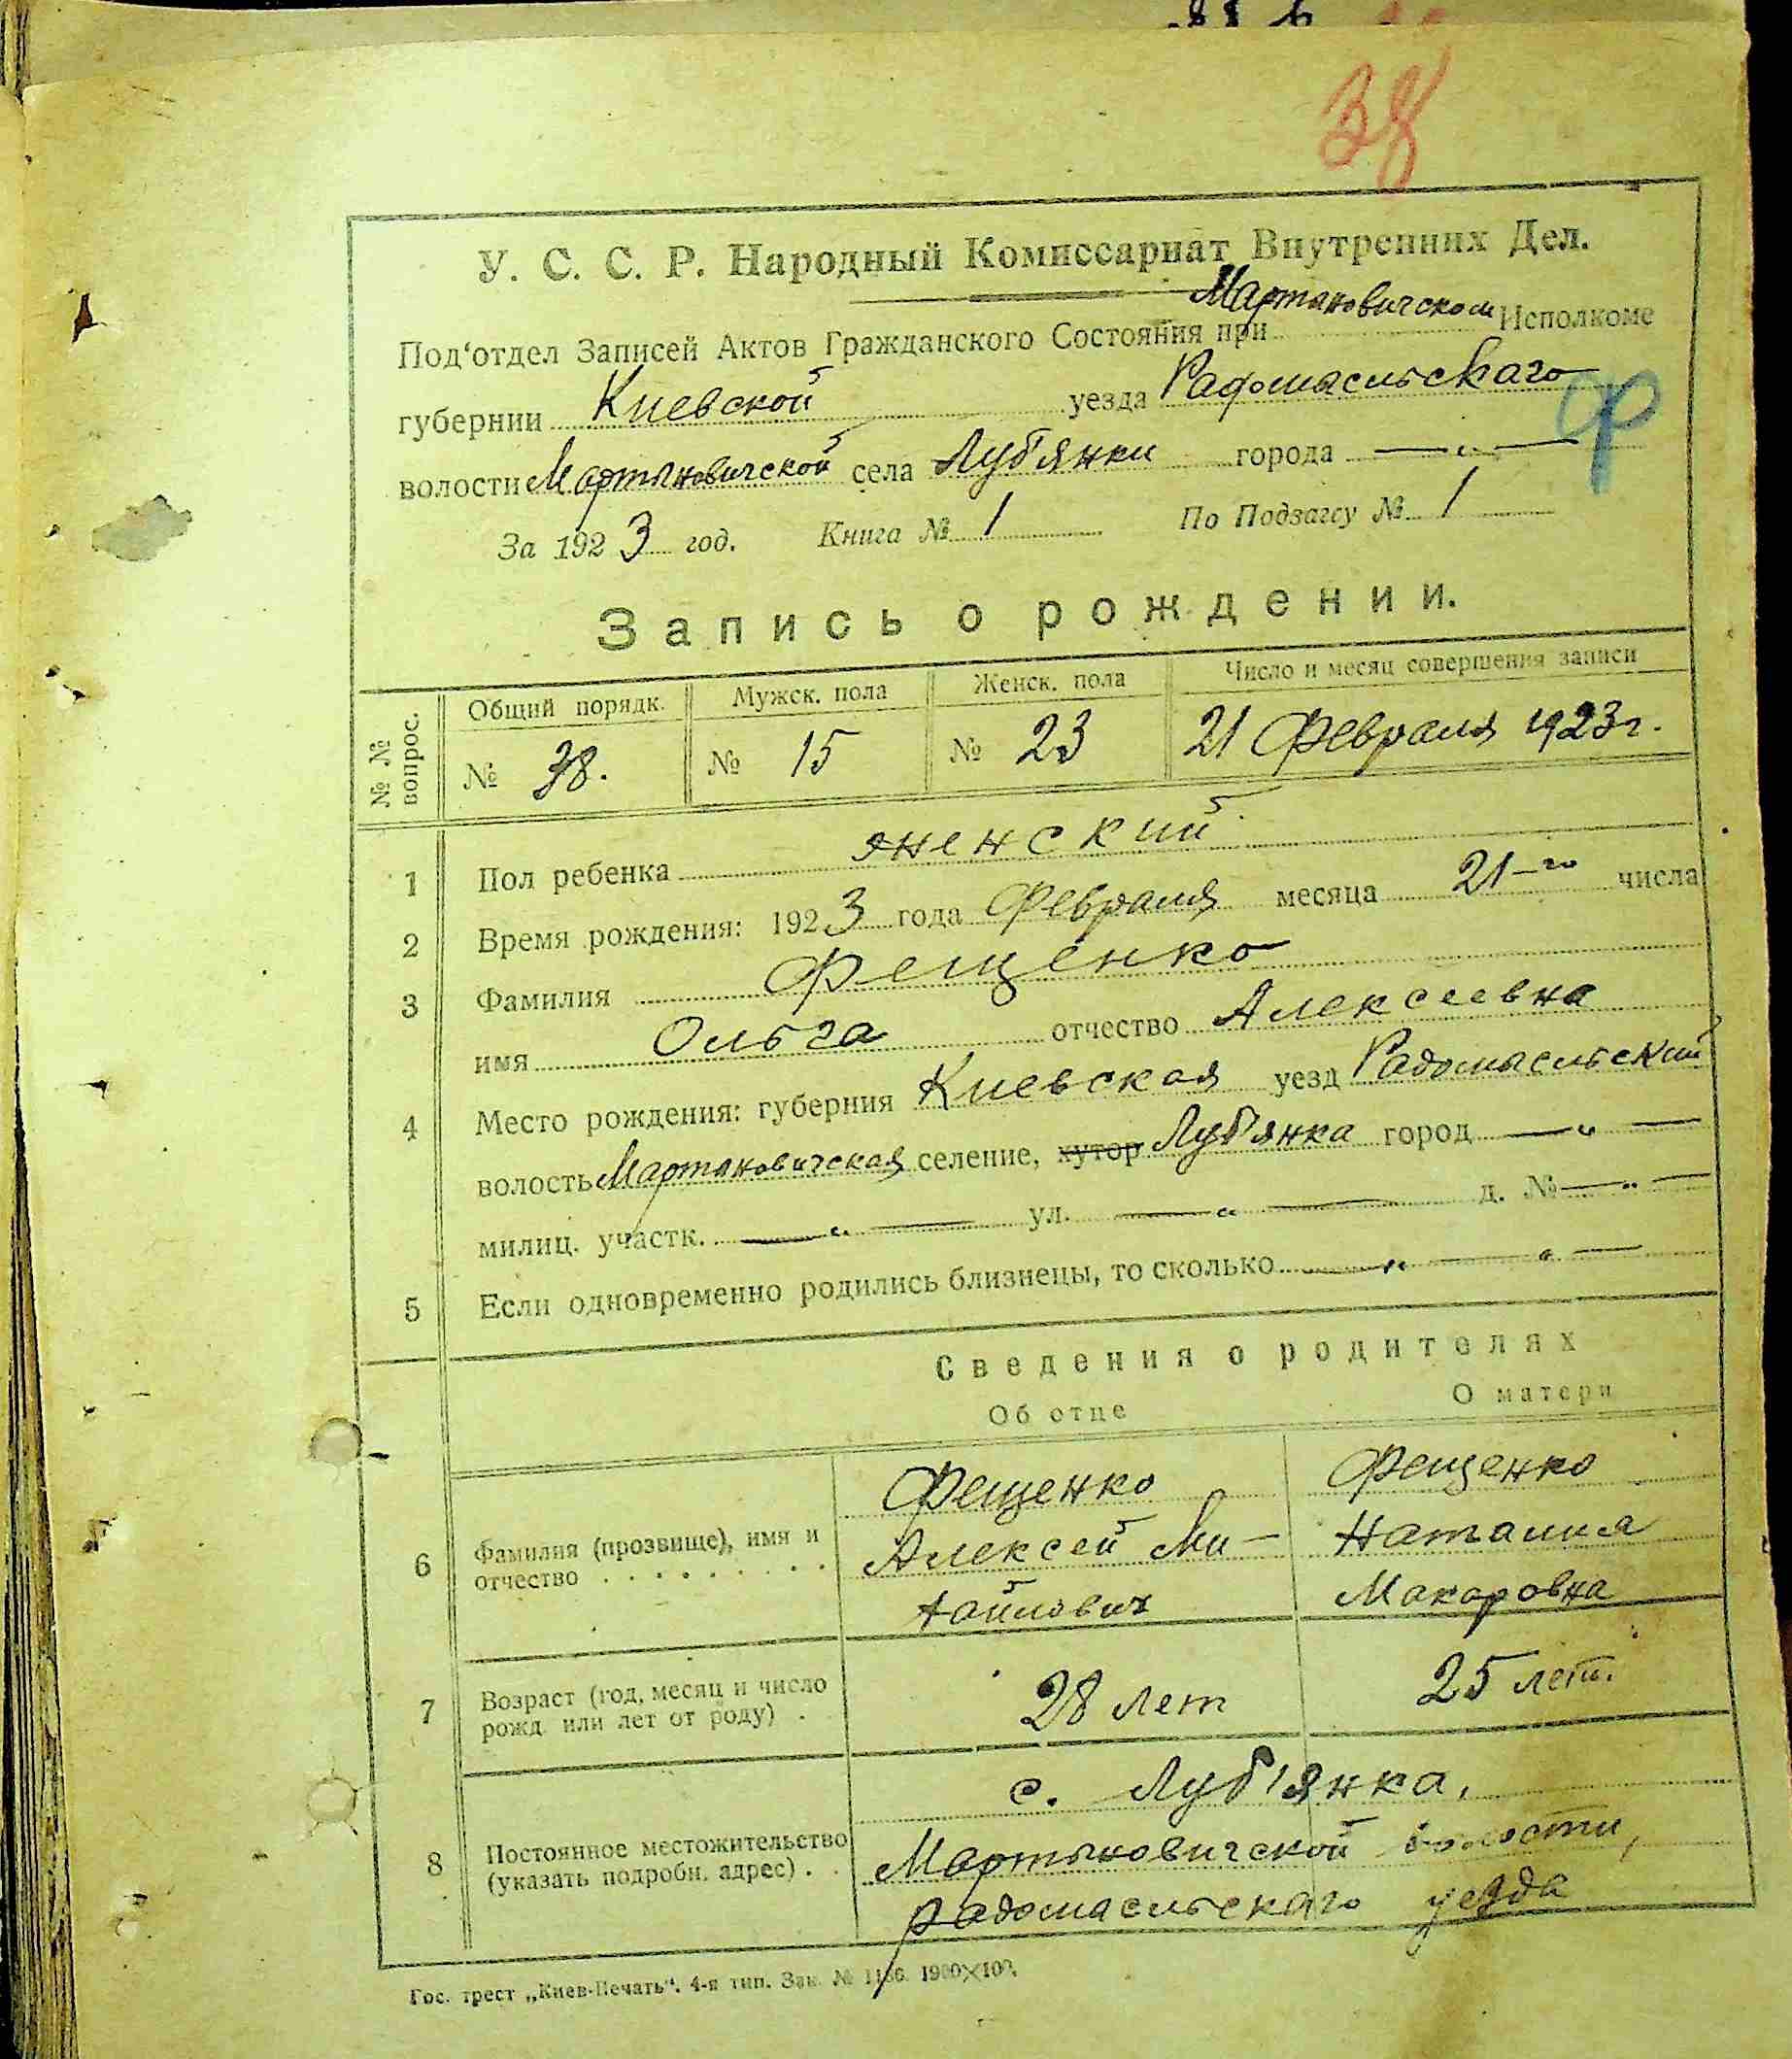 38
У. С. С. Р. Народный Комиссариат Внутренних Дел.
Под‘отдел Записей Актов Гражданского Состояния при Мартыновичском Исполкоме
губернии Киевской уезда Радомысльскаго
ф
волости Мартыновичской села Луб'янки города — „ —
За 1923 год. Книга № 1 По Подзагсу № 1
Запись о рождении.
№ № вопрос. Общий порядк. Мужск. пола Женск. пола Число и месяц совершения записи
№ 38. № 15 № 23 21 Февраля 1923 г.
1 Пол ребенка женский
2 Время рождения: 1923 года Февраля месяца 21-го числа
3 Фамилия Фещенко
имя Ольга отчество Алексеевна
4 Место рождения: губерния Киевская уезд Радомысльский
волость Мартыновичская селение, хутор Луб'янка город — „ —
милиц. участк. — „ — ул. — „ — д. № — „ —
5 Если одновременно родились близнецы, то сколько — „ — „ —
Сведения о родителях
Об отце О матери
Фещенко Фещенко
6 Фамилия (прозвище), имя и Алексей Ми- Наталия
отчество . . . . . . . . . хайлович Макаровна
7 Возраст (год, месяц и число 28 лет 25 лет.
рожд. или лет от роду) .
с. Луб'янка,
8 Постоянное местожительство Мартыновичской волости,
(указать подробн. адрес) . . радомысльскаго уезда
Гос. трест „Киев-Печать“. 4-я тип. Зак. №